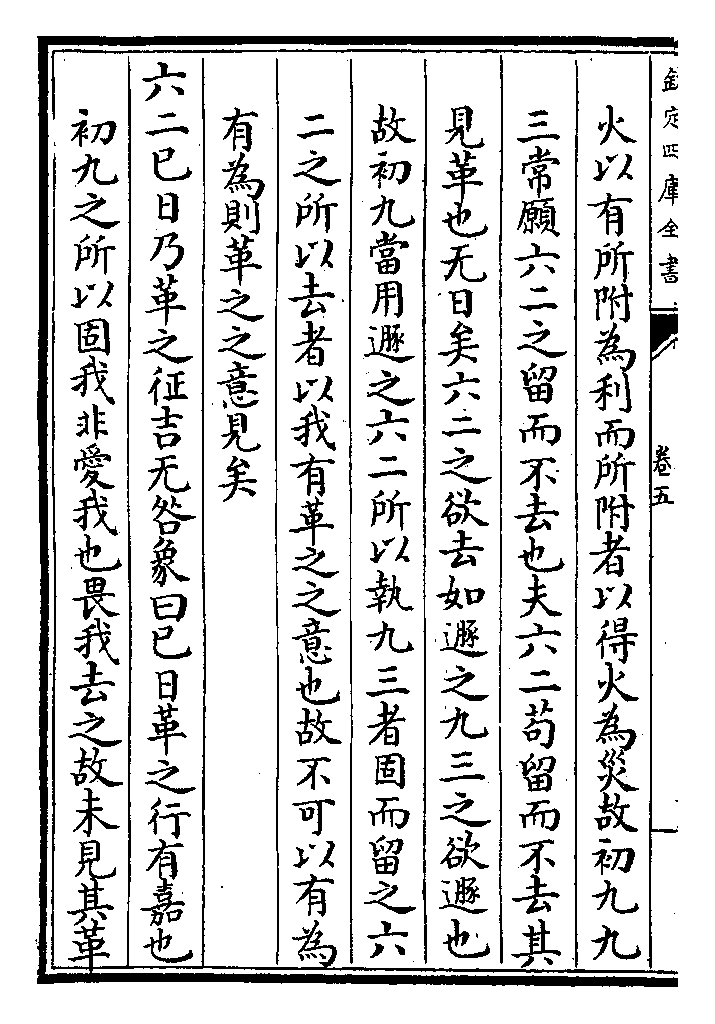 欽定四庫全書
卷五
火以有所附為利而所附者以得火為災故初九九
三常願六二之留而不去也夫六二茍留而不去其
見革也无日矣六二之欲去如遯之九三之欲遯也
故初九當用遯之六二所以執九三者固而留之六
二之所以去者以我有革之之意也故不可以有為
有為則革之之意見矣
六二巳日乃革之征吉无咎象曰巳日革之行有嘉也
初九之所以固我非愛我也畏我去之故未見其革